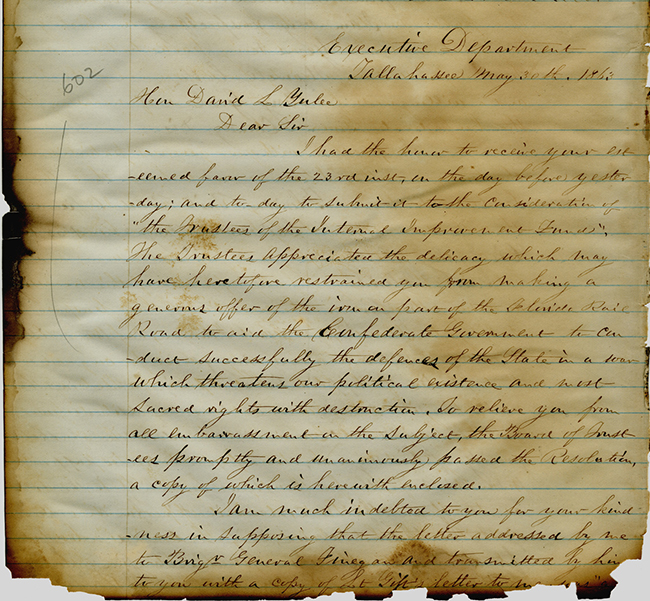 Executive Department
Tallahassee May 30th. 1863
602
Hon David L Yulee
Dear Sir
I had the honor to receive your est
-eemed favor of the 23rd inst, on the day before yester
-day; and to day to submit it to the consideration of
"the Trustees of the Internal Improvement Funds".
The Trustees appreciated the delicacy which may
have heretofore restrained you from making a
generous offer of the iron on part of the Florida Rail
Road to aid the Confederate Government to con
-duct successfully the defences of the State in a war
which threatens our political existence and most
sacred rights with destruction. To relieve you from
all embarrassment on the subject, the Board of Trust
-ees promptly and unanimously passed the Resolution,
a copy of which is herewith enclosed.
I am much indebted to you for your kind
-ness in supposing that the letter addressed by me
to Brigr General Finegan and transmitted by him
to you with a copy of Lt Gift's letter to